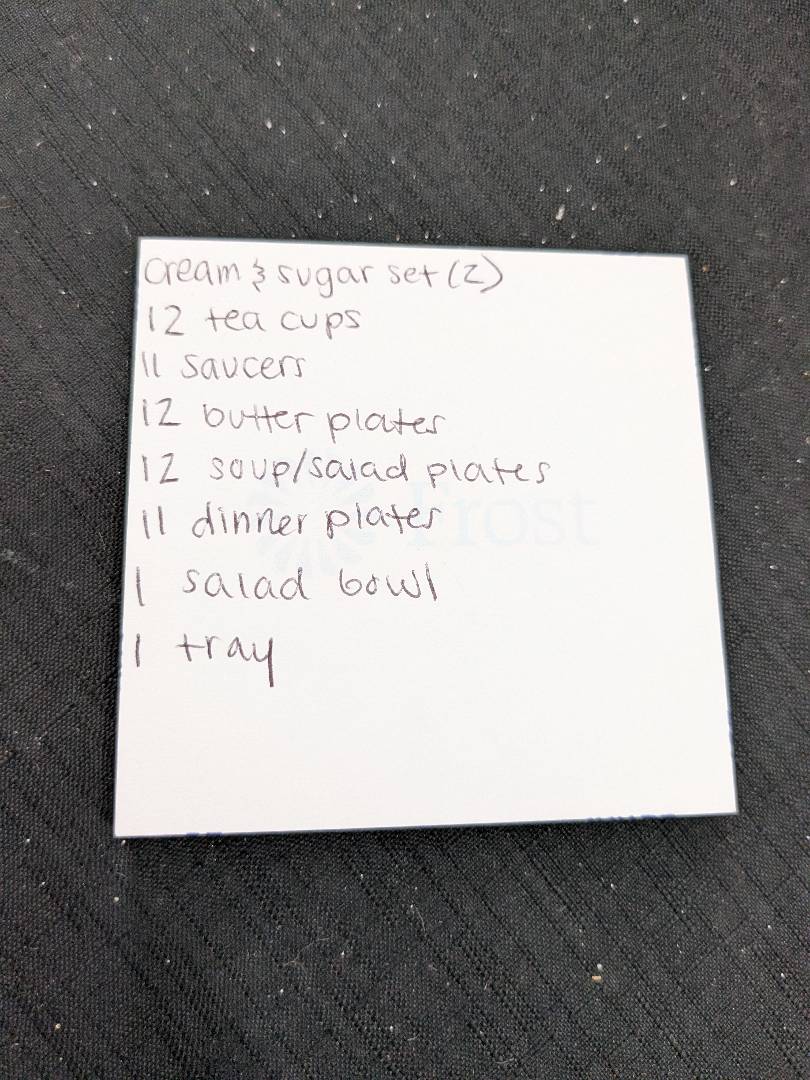 cream & sugar set (2)
12 tea cups
11 saucers
12 butter plates
12 soup/salad plates
11 dinner plates
Frost
1 salad bowl
1 tray